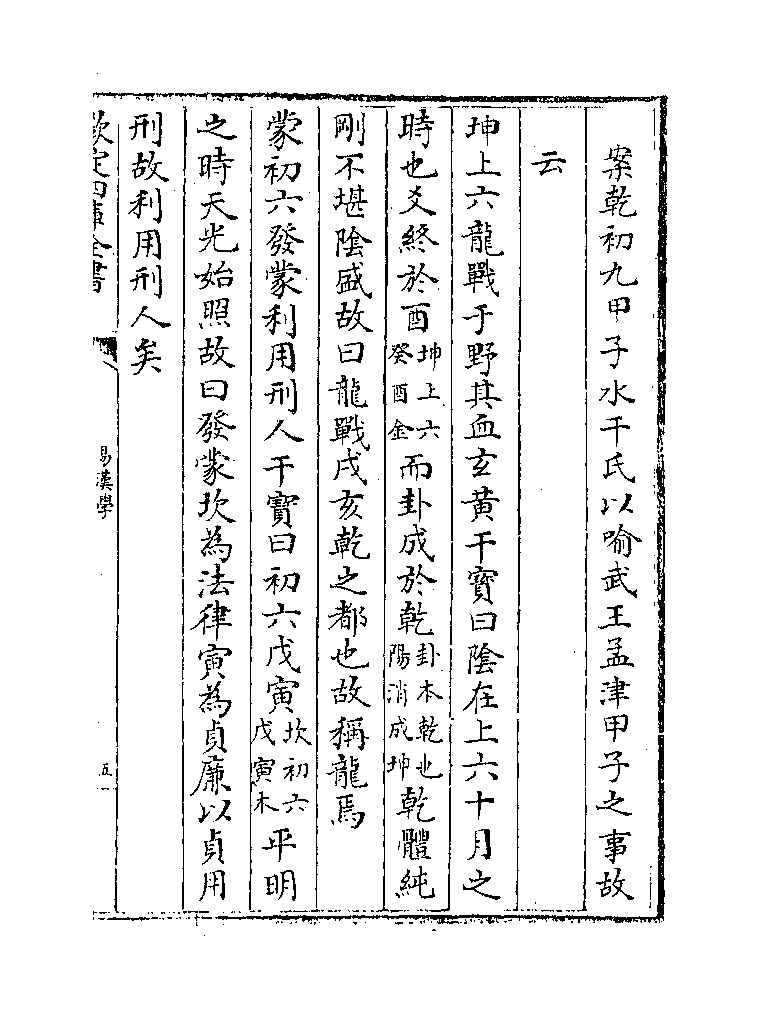 案乾初九甲子水干氏以喻武王孟津甲子之事故
云
坤上六龍戰于野其血玄黄干寶曰陰在上六十月之
時也爻終於酉坤上六癸酉金而卦成於乾卦本乾也陽消成坤乾體純
剛不堪陰盛故曰龍戰戌亥乾之都也故稱龍焉
蒙初六發蒙利用刑人干寶曰初六戊寅坎初六戊寅木平明
之時天光始照故曰發蒙坎為法律寅為貞廉以貞用
刑故利用刑人矣
欽定四庫全書
易漢學
五